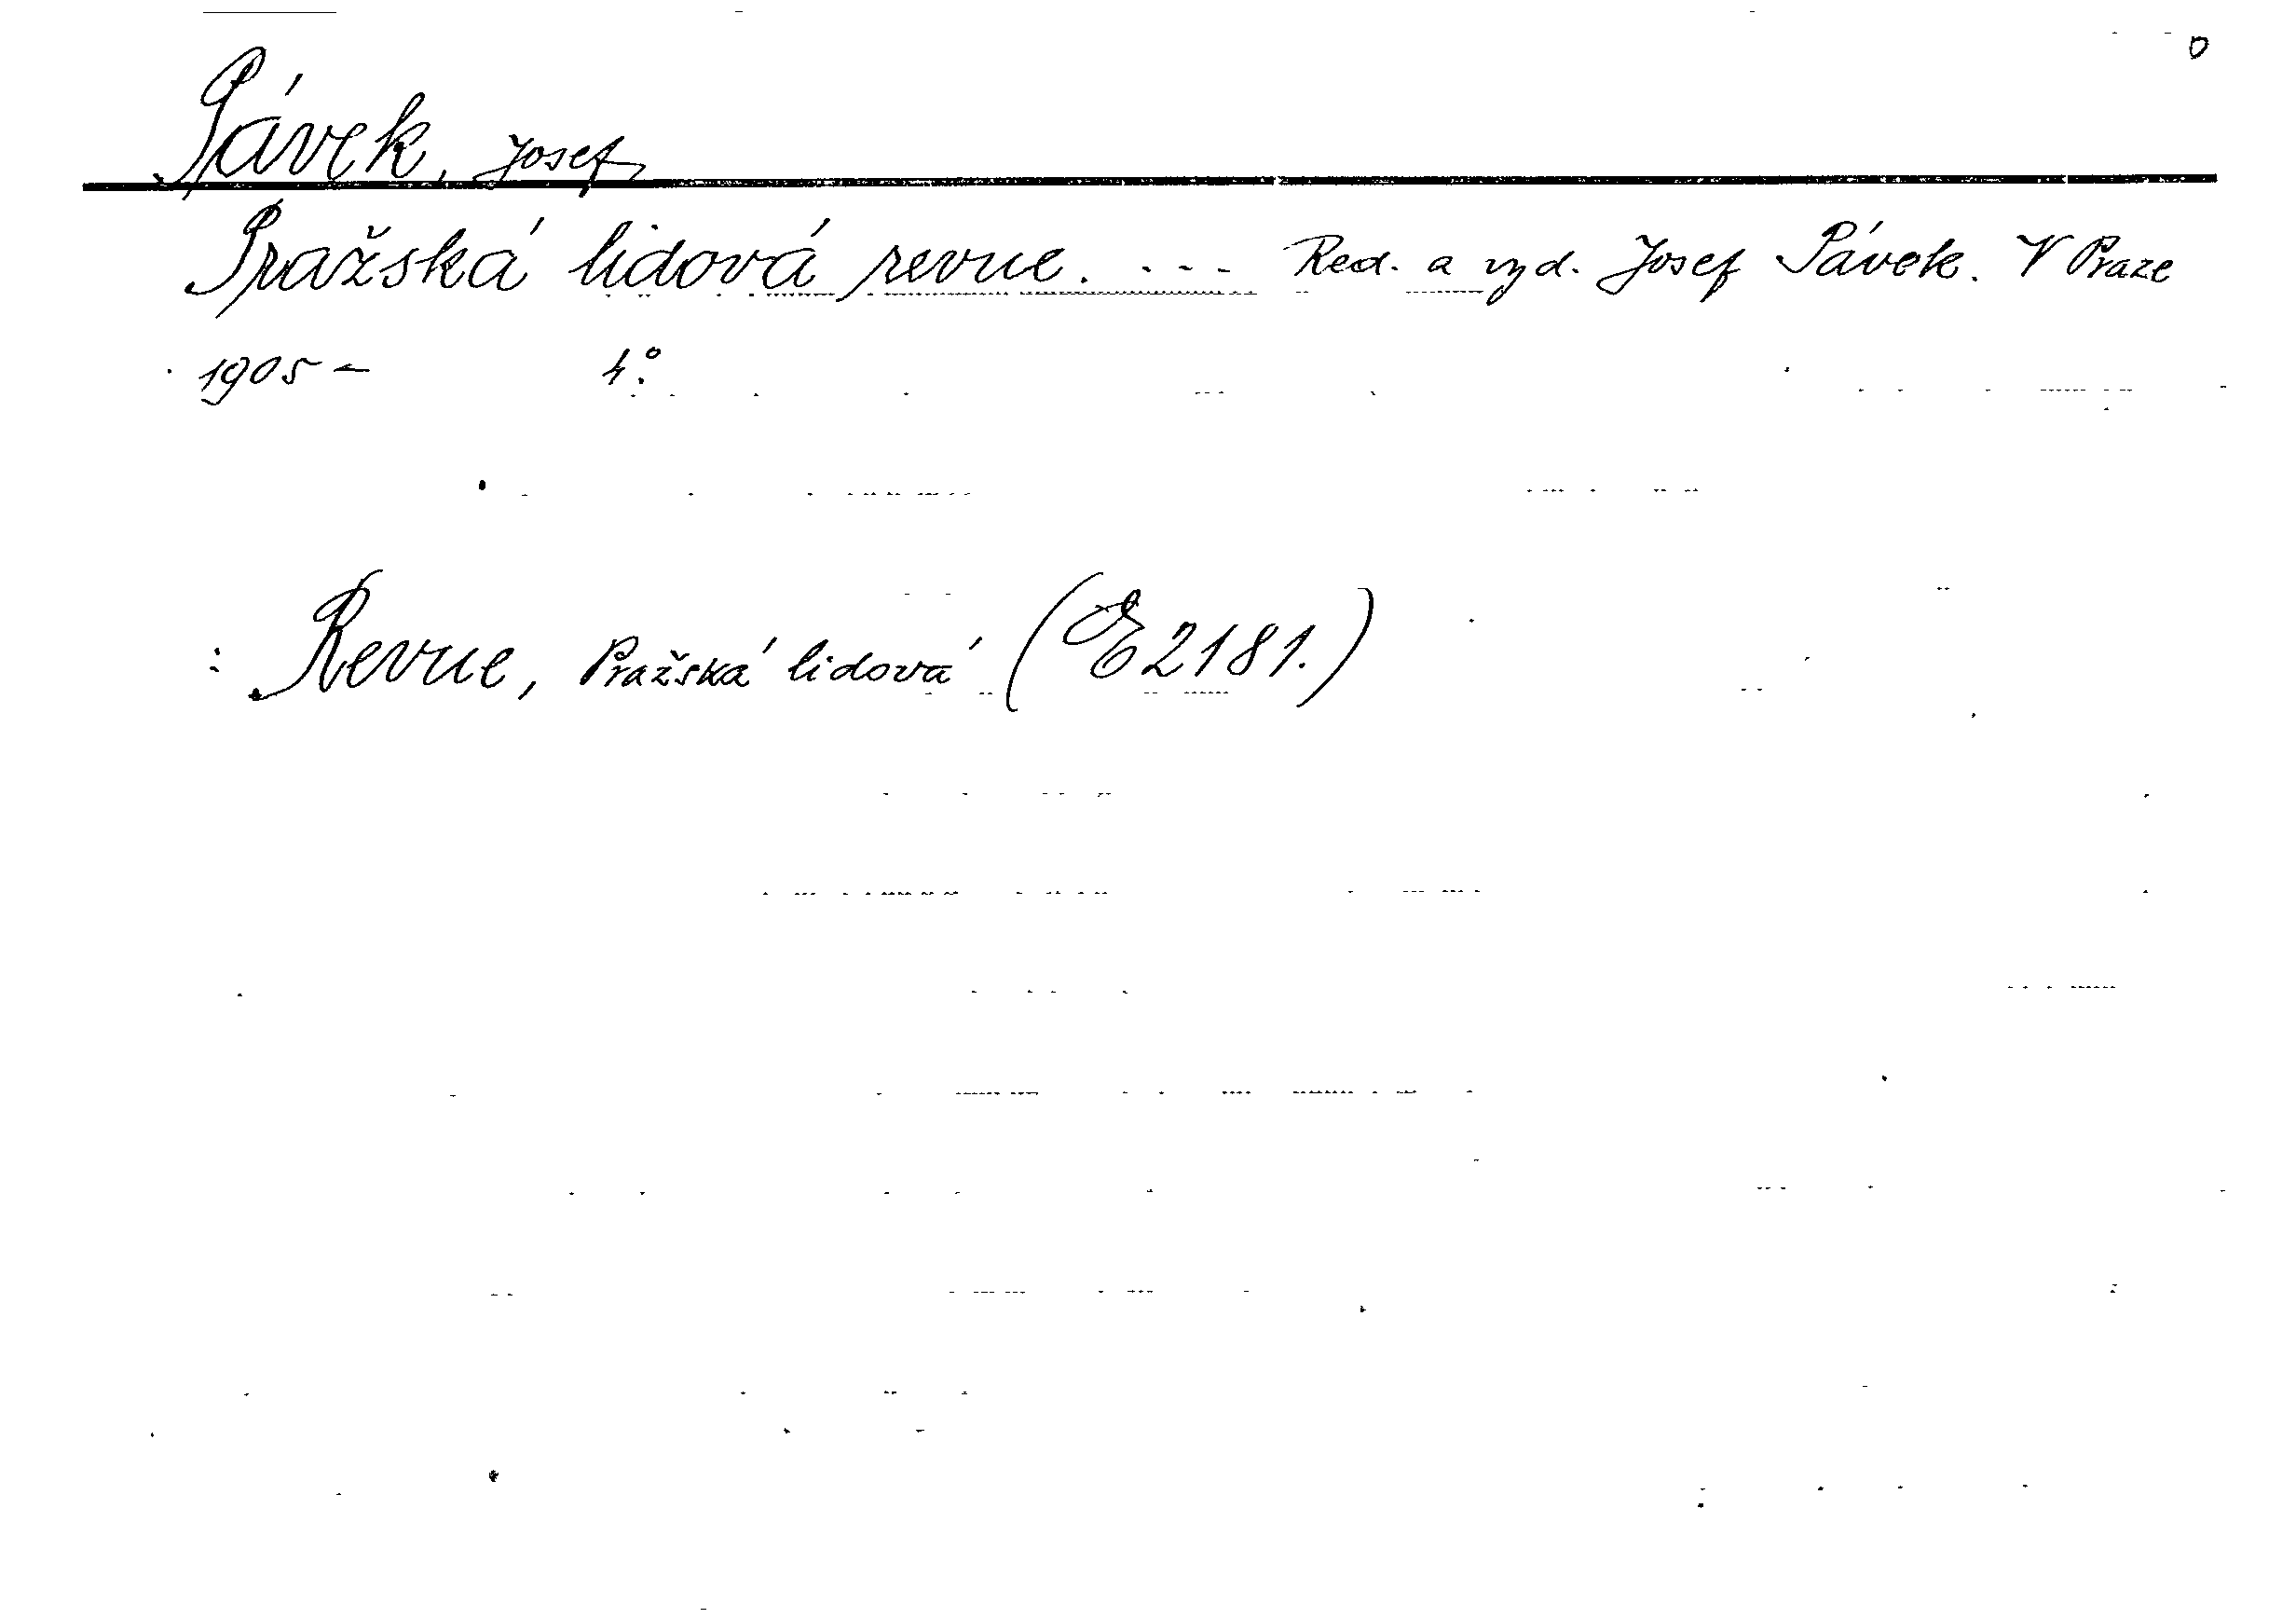 Pávek, Josef
Pražská lidová revue. ... Red. a vyd. Josef Pávek. V Praze
1905 - 4°.
: Revue, Pražská lidová (E 2181.)